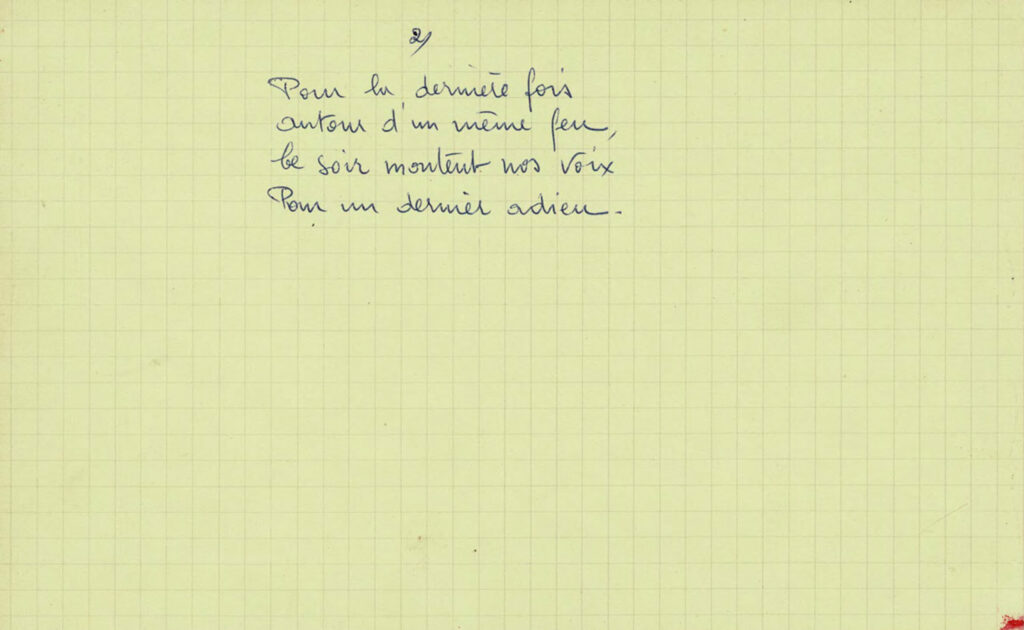 2/
Pour la dernière fois
autour d'un même feu,
ce soir montent nos voix
Pour un dernier adieu.